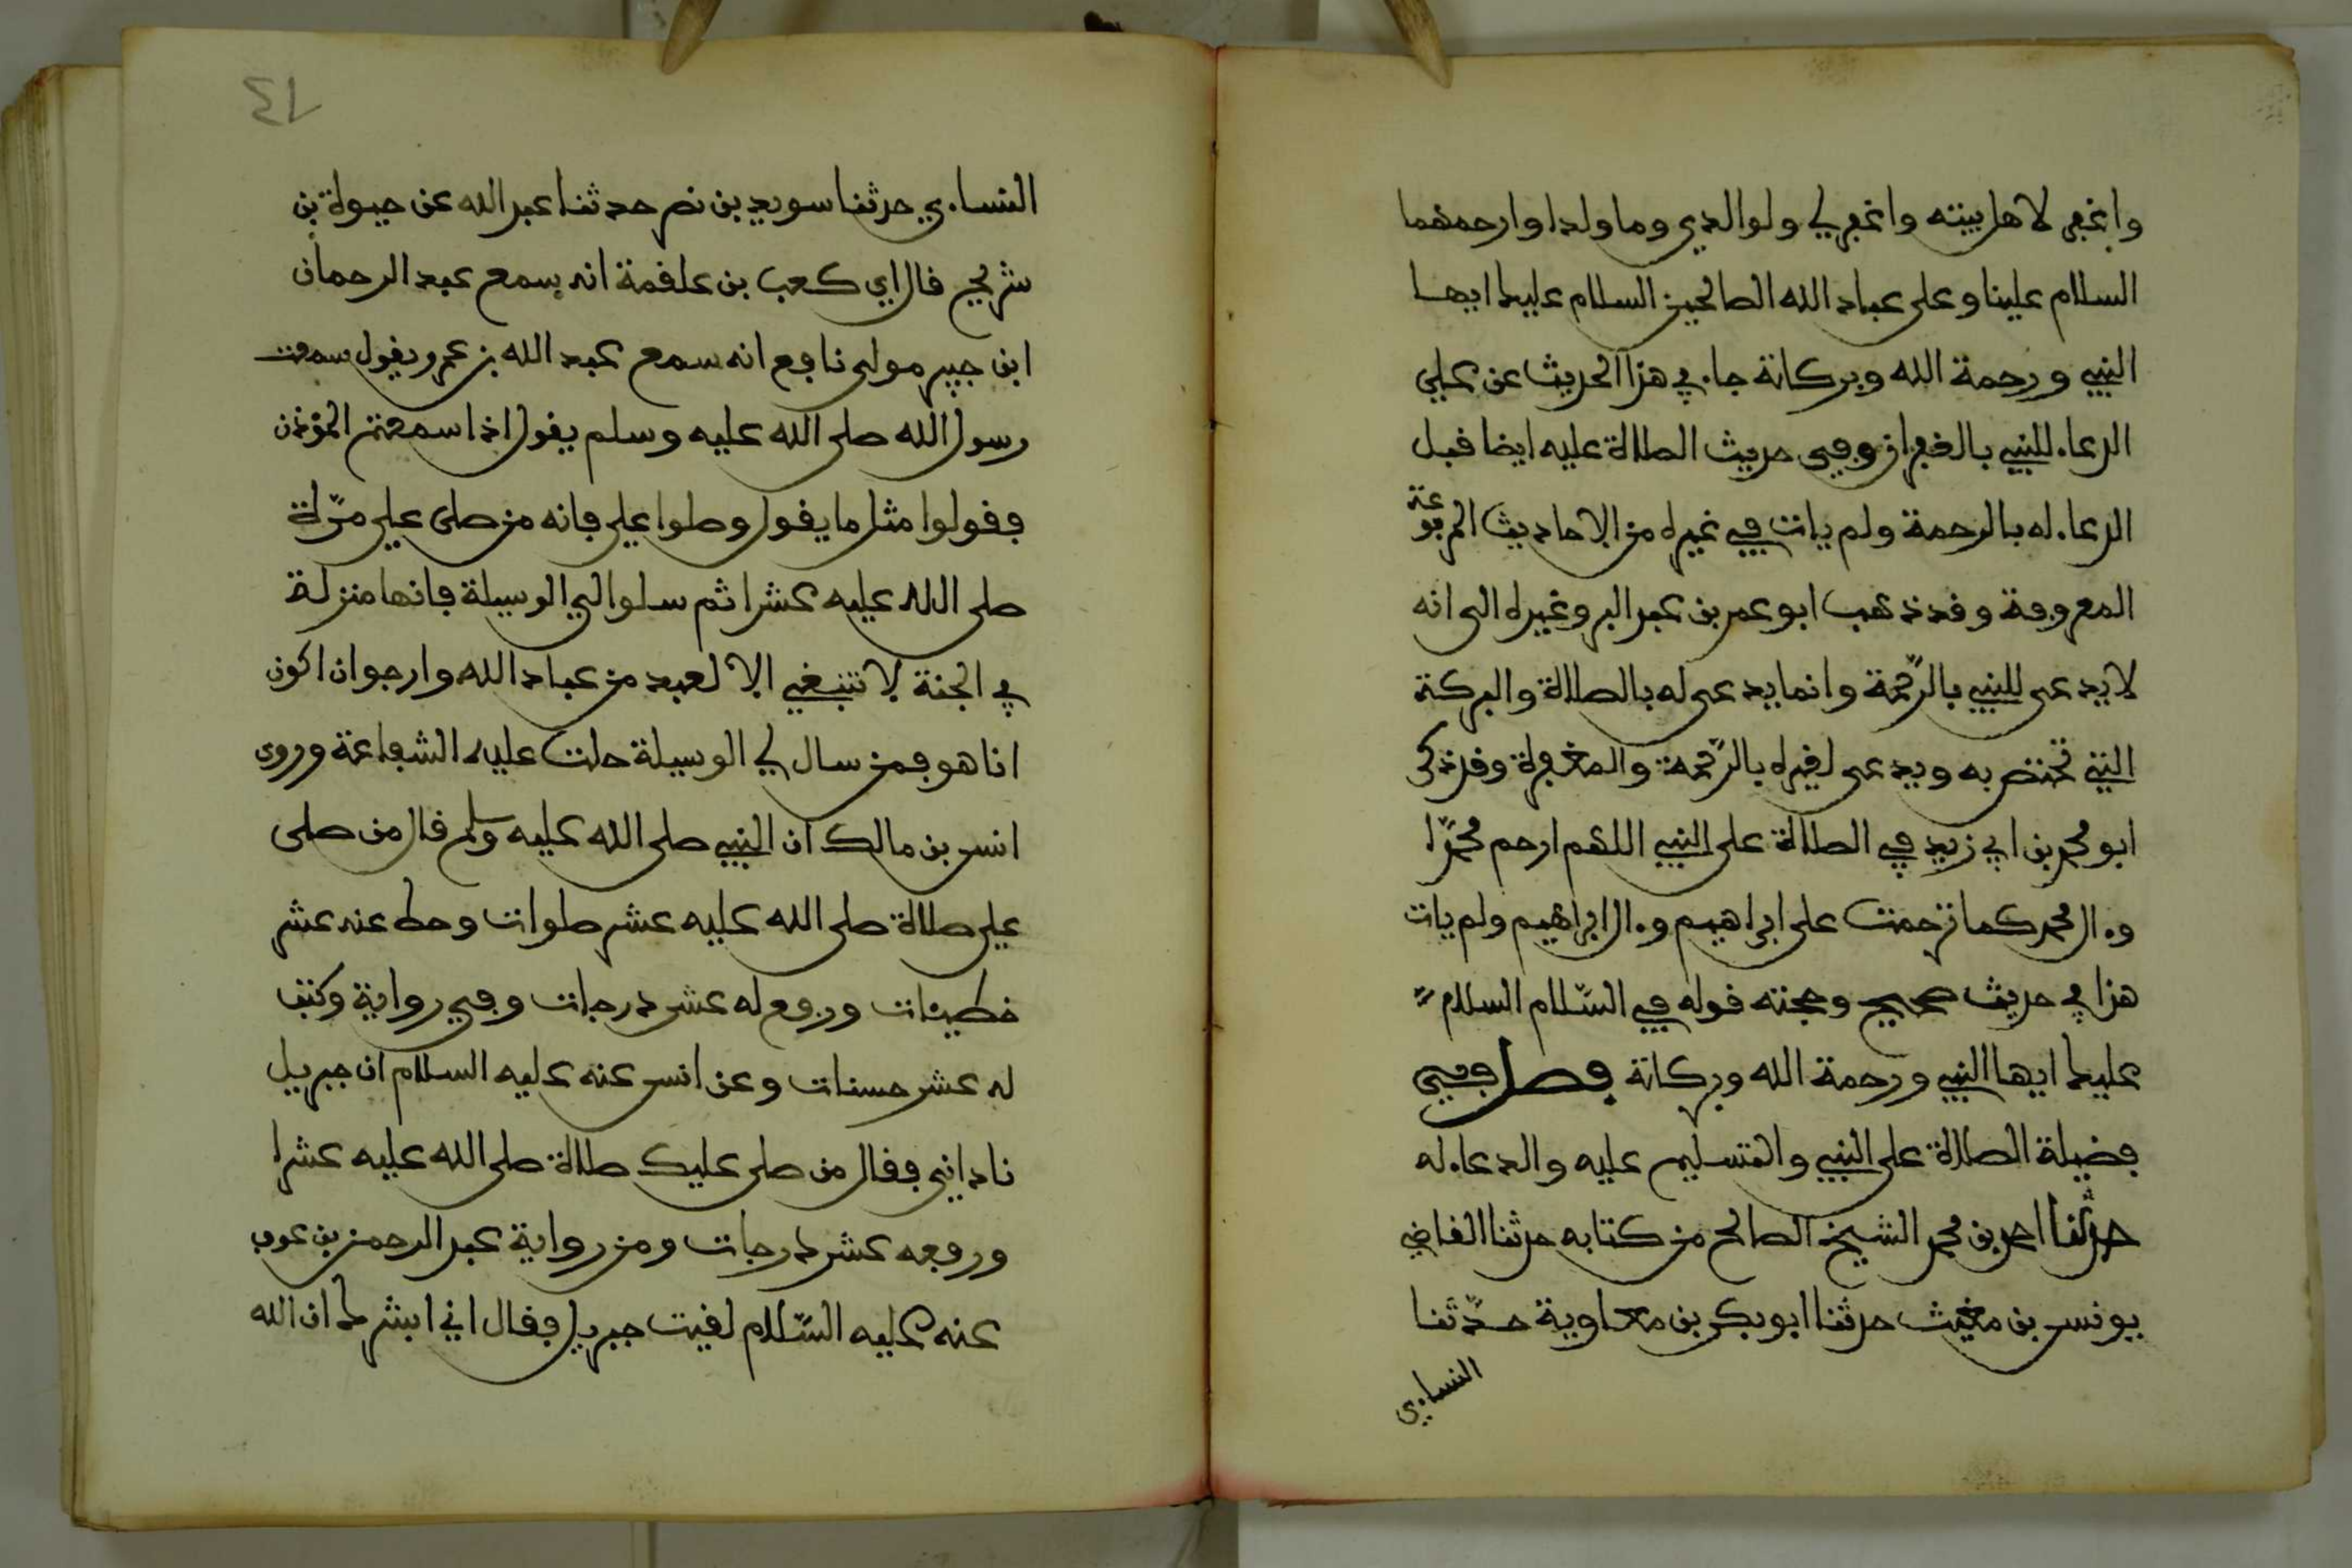 واغفر لاهل بيته واغفر لي ولوالدي وما ولدا وارحمهما
السلام علينا وعلى عباد الله الصالحين السلام عليك ايها
النبي ورحمة الله وبركاته جاء في هذا الحديث عن علي
الدعاء للنبي بالغفران وفي حديث الصلاة عليه ايضا قبل
الدعاء له بالرحمة ولم يات في غيره من الاحاديث المرفوعة
المعروفة وقد ذهب ابو عمر بن عبد البر وغيره الى انه
لا يدعى للنبي بالرّحمة وانما يدعى له بالصلاة والبركة
التي تختص به ويدعى لغيره بالرّحمة والمغفرة وقد ذكر
ابو محمد بن ابي زيد في الصلاة على النبي اللهم ارحم محمّدا
وءال محمد كما ترحمت على ابراهيم وءال ابراهيم ولم يات
هذا في حديث صحيح وحجته قوله في السّلام السلام
عليك ايها النبي ورحمة الله وبركاته فصل في
فضيلة الصلاة على النبي والتسليم عليه والدعاء له
حدثنا احمد بن محمد الشيخ الصالح من كتابه حدثنا القاضي
يونس بن مغيث حدثنا ابو بكر بن معاوية حدّثنا
النساءي
٤٦
النساءي حدثنا سويد بن نصر حدثنا عبد الله عن حيوة بن
شريح قال اي كعب بن علقمة انه سمع عبد الرحمان
ابن جبير مولى نافع انه سمع عبد الله بن عمرو يقول سمعت
رسول الله صلى الله عليه وسلم يقول اذا سمعتم المؤذن
فقولوا مثل ما يقول وصلوا علي فانه من صلى علي مرّة
صلى الله عليه عشرا ثم سلوا لي الوسيلة فانها منزلة
في الجنة لا تنبغي الا لعبد من عباد الله وارجوا ان اكون
انا هو فمن سال لي الوسيلة حلت عليه الشفاعة وروى
انس بن مالك ان النبي صلى الله عليه وسلم قال من صلى
علي صلاة صلى الله عليه عشر صلوات وحط عنه عشر
خطيئات ورفع له عشر درجات وفي رواية وكتب
له عشر حسنات وعن انس عنه عليه السلام ان جبريل
ناداني فقال من صلى عليك صلاة صلى الله عليه عشرا
ورفعه عشر درجات ومن رواية عبد الرحمن بن عوف
عنه عليه السّلام لقيت جبريل فقال اني ابشرك ان الله